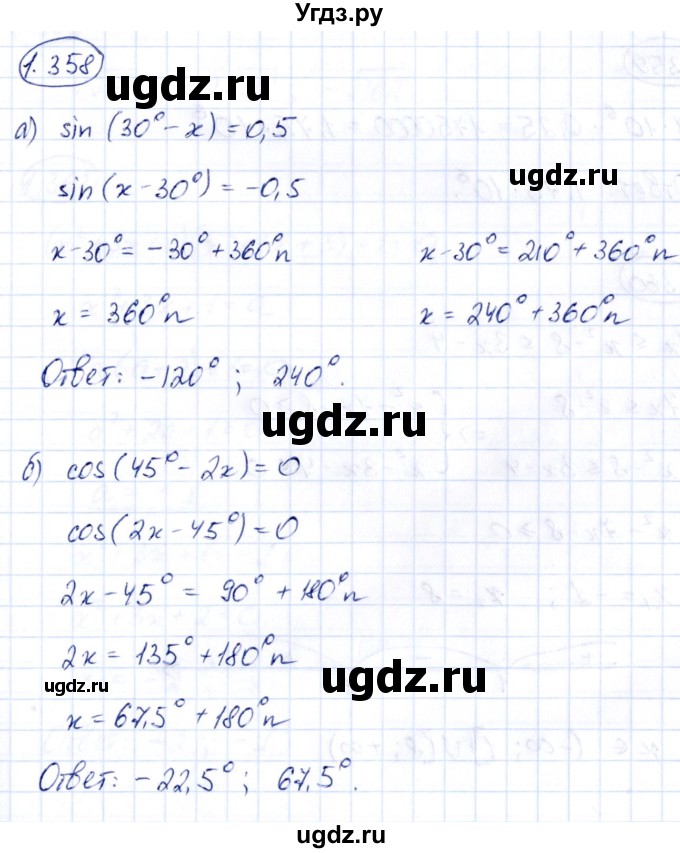 Угдз.ру
1.358
ugdz.ru
а) sin (30° - x) = 0,5
sin (x - 30°) = -0,5
ugdz.ru
x - 30° = -30° + 360°n    x - 30° = 210° + 360°n
x = 360°n    x = 240° + 360°n
Ответ: -120°; 240°.
ugdz.ru
б) cos (45° - 2x) = 0
cos (2x - 45°) = 0
2x - 45° = 90° + 180°n
2x = 135° + 180°n
ugdz.ru
ugdz.ru
x = 67,5° + 180°n
Ответ: -22,5°; 67,5°.
ugdz.ru